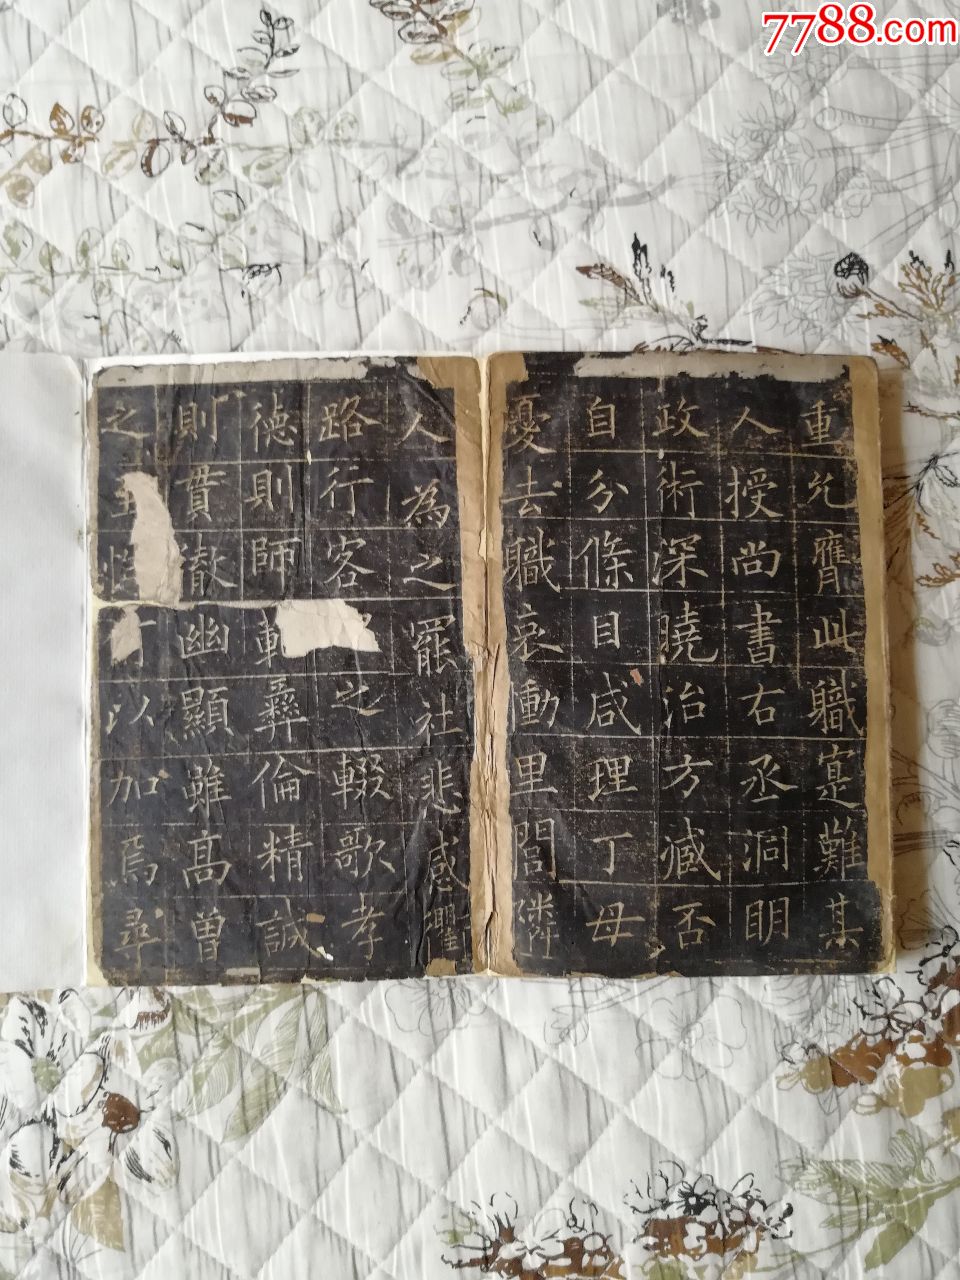 7788.com
重允膺此職寔難其
人授尚書右丞洞明
政術深曉治方臧否
自分條目咸理丁母
憂去職哀慟里閭隣
人為之罷社悲感衢
路行客之輟歌孝
德則師範彝倫精誠
則貫徹幽顯雖高曾
之至以加焉尋